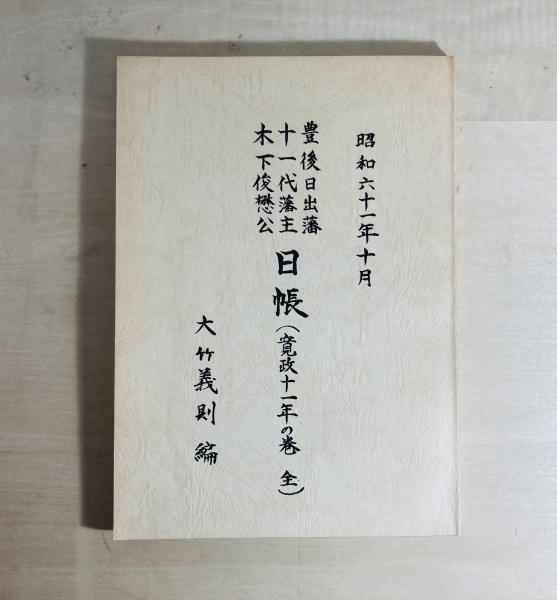 昭和六十一年十月
豊後日出藩
十一代藩主
木下俊懋公
日帳（寛政十一年の巻 全）
大竹義則 編